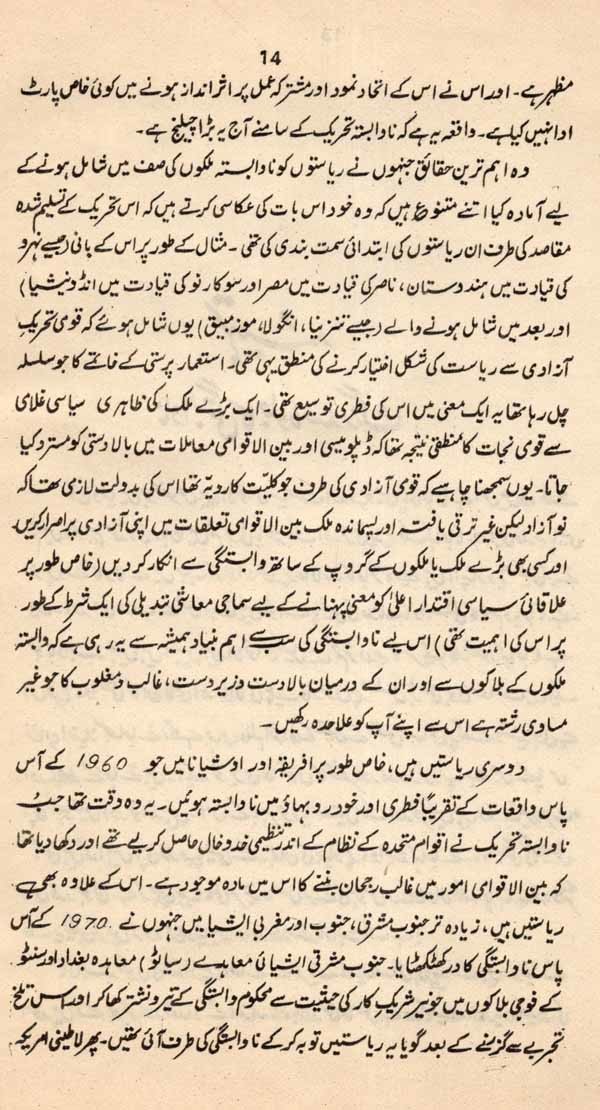 14
مظہر ہے۔ اور اس نے اس کے اتحاد نمود اور مشترکہ عمل پر اثر انداز ہونے میں کوئی خاص پارٹ
ادا نہیں کیا ہے۔ واقعہ یہ ہے کہ ناوابستہ تحریک کے سامنے آج یہ بڑا چیلنج ہے۔
وہ اہم ترین حقائق جنہوں نے ریاستوں کو ناوابستہ ملکوں کی صف میں شامل ہونے کے
لیے آمادہ کیا اتنے متنوع ہیں کہ وہ خود اس بات کی عکاسی کرتے ہیں کہ اس تحریک کے تسلیم شدہ
مقاصد کی طرف ان ریاستوں کی ابتدائی سمت بندی کی تھی۔ مثال کے طور پر اس کے بانی (جیسے نہرو
کی قیادت میں ہندوستان، ناصر کی قیادت میں مصر اور سوکارنو کی قیادت میں انڈونیشیا)
اور بعد میں شامل ہونے والے (جیسے تنزنیا، انگولا، موزمبیق) یوں شامل ہوئے کہ قومی تحریک
آزادی سے ریاست کی شکل اختیار کرنے کی منطق یہی تھی۔ استعمار پرستی کے خاتمے کا جو سلسلہ
چل رہا تھا یہ ایک معنی میں اس کی فطری توسیع تھی۔ ایک بڑے ملک کی ظاہری سیاسی غلامی
سے قومی نجات کا منطقی نتیجہ تھا کہ ڈپلومیسی اور بین الاقوامی معاملات میں بالادستی کو مسترد کیا
جاتا۔ یوں سمجھنا چاہیے کہ قومی آزادی کی طرف جو کلیّت کا رویّہ تھا اس کی بدولت لازمی تھا کہ
نو آزاد لیکن غیر ترقی یافتہ اور پسماندہ ملک بین الاقوامی تعلقات میں اپنی آزادی پر اصرار کریں
اور کسی بھی بڑے ملک یا ملکوں کے گروپ کے ساتھ وابستگی سے انکار کر دیں (خاص طور پر
علاقائی سیاسی اقتدار اعلیٰ کو معنی پہنانے کے لیے سماجی معاشی تبدیلی کی ایک شرط کے طور
پر اس کی اہمیت تھی) اس لیے ناوابستگی کی سب سے اہم بنیاد ہمیشہ سے یہ رہی ہے کہ وابستہ
ملکوں کے بلاکوں سے اور ان کے درمیان بالادست و زیردست، غالب و مغلوب کا جو غیر
مساوی رشتہ ہے اس سے اپنے آپ کو علاحدہ رکھیں۔
دوسری ریاستیں ہیں، خاص طور پر افریقہ اور اوشیانا میں جو 1960 کے آس
پاس واقعات کے تقریباً فطری اور خود رو بہاؤ میں ناوابستہ ہوئیں۔ یہ وہ وقت تھا جب
ناوابستہ تحریک نے اقوام متحدہ کے نظام کے اندر تنظیمی خدوخال حاصل کر لیے تھے اور دکھا دیا تھا
کہ بین الاقوامی امور میں غالب رجحان بننے کا اس میں مادہ موجود ہے۔ اس کے علاوہ بھی
ریاستیں ہیں، زیادہ تر جنوب مشرقی، جنوب اور مغربی ایشیا میں جنہوں نے 1970 کے آس
پاس ناوابستگی کا در کھٹکھٹایا۔ جنوب مشرقی ایشیائی معاہدے (سیاٹو) معاہدہ بغداد اور سنٹو
کے فوجی بلاکوں میں جونیر شریک کار کی حیثیت سے محکوم وابستگی کے تیر و نشتر کھا کر اور اس تلخ
تجربے سے گزرنے کے بعد گویا یہ ریاستیں توبہ کر کے ناوابستگی کی طرف آئی تھیں۔ پھر لاطینی امریکہ